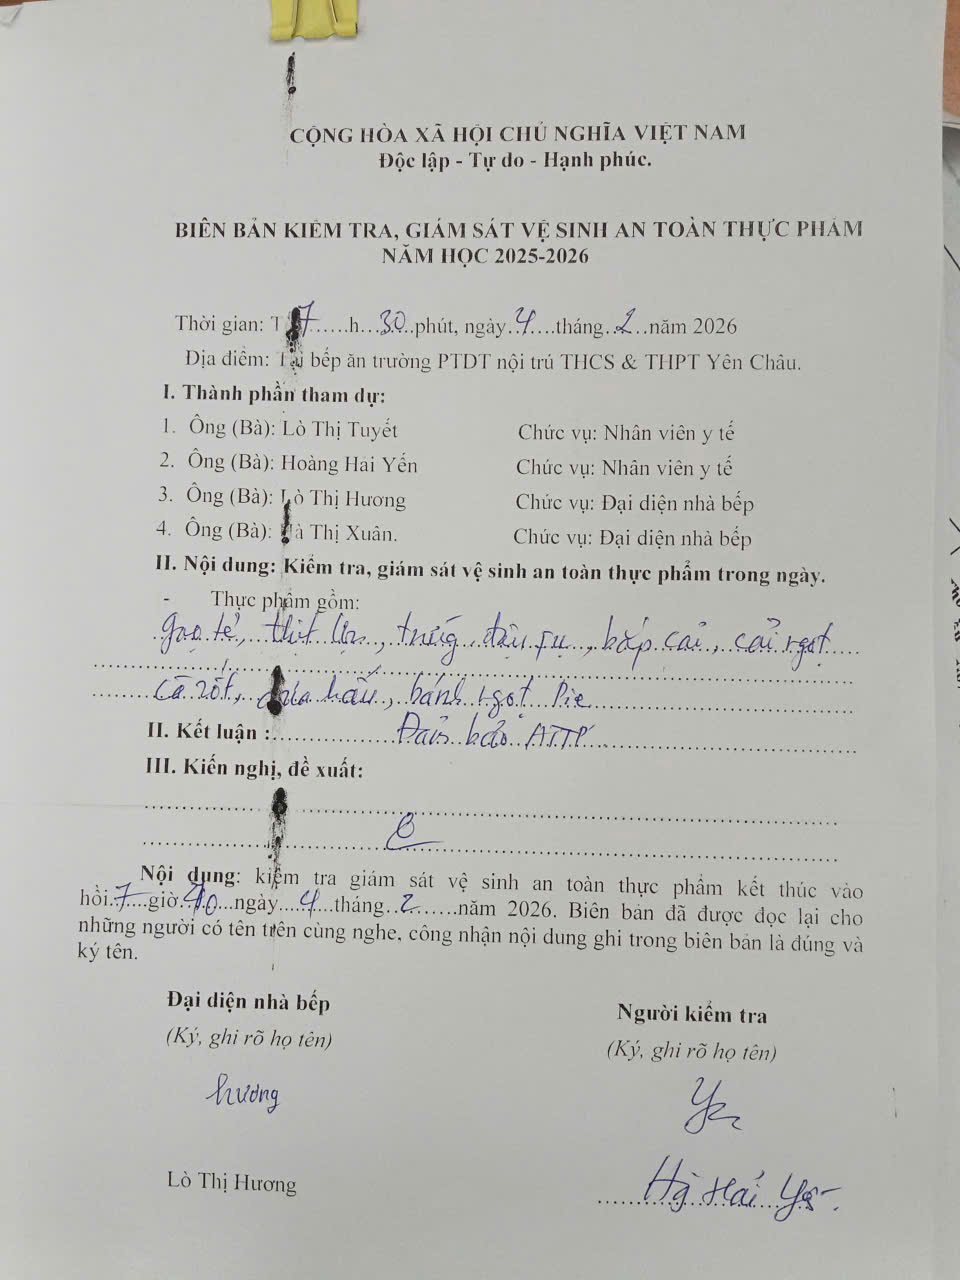 CỘNG HÒA XÃ HỘI CHỦ NGHĨA VIỆT NAM
Độc lập - Tự do - Hạnh phúc.
BIÊN BẢN KIỂM TRA, GIÁM SÁT VỆ SINH AN TOÀN THỰC PHẨM
NĂM HỌC 2025-2026
Thời gian: T 7......h...30..phút, ngày..4....tháng..2..năm 2026
Địa điểm: Tại bếp ăn trường PTDT nội trú THCS & THPT Yên Châu.
I. Thành phần tham dự:
1. Ông (Bà): Lò Thị Tuyết Chức vụ: Nhân viên y tế
2. Ông (Bà): Hoàng Hải Yến Chức vụ: Nhân viên y tế
3. Ông (Bà): Lò Thị Hương Chức vụ: Đại diện nhà bếp
4. Ông (Bà): Hà Thị Xuân. Chức vụ: Đại diện nhà bếp
II. Nội dung: Kiểm tra, giám sát vệ sinh an toàn thực phẩm trong ngày.
- Thực phẩm gồm:
gạo tẻ, thịt lợn, trứng, đậu fụ, bắp cải, cải ngọt
cà rốt, dưa hấu, bánh ngọt Pie
II. Kết luận : Đảm bảo ATTP
III. Kiến nghị, đề xuất:
Nội dung: kiểm tra giám sát vệ sinh an toàn thực phẩm kết thúc vào
hồi.7....giờ.40...ngày....4....tháng..2.......năm 2026. Biên bản đã được đọc lại cho
những người có tên trên cùng nghe, công nhận nội dung ghi trong biên bản là đúng và
ký tên.
Đại diện nhà bếp Người kiểm tra
(Ký, ghi rõ họ tên) (Ký, ghi rõ họ tên)
Hương
Lò Thị Hương Hg Hải Yến